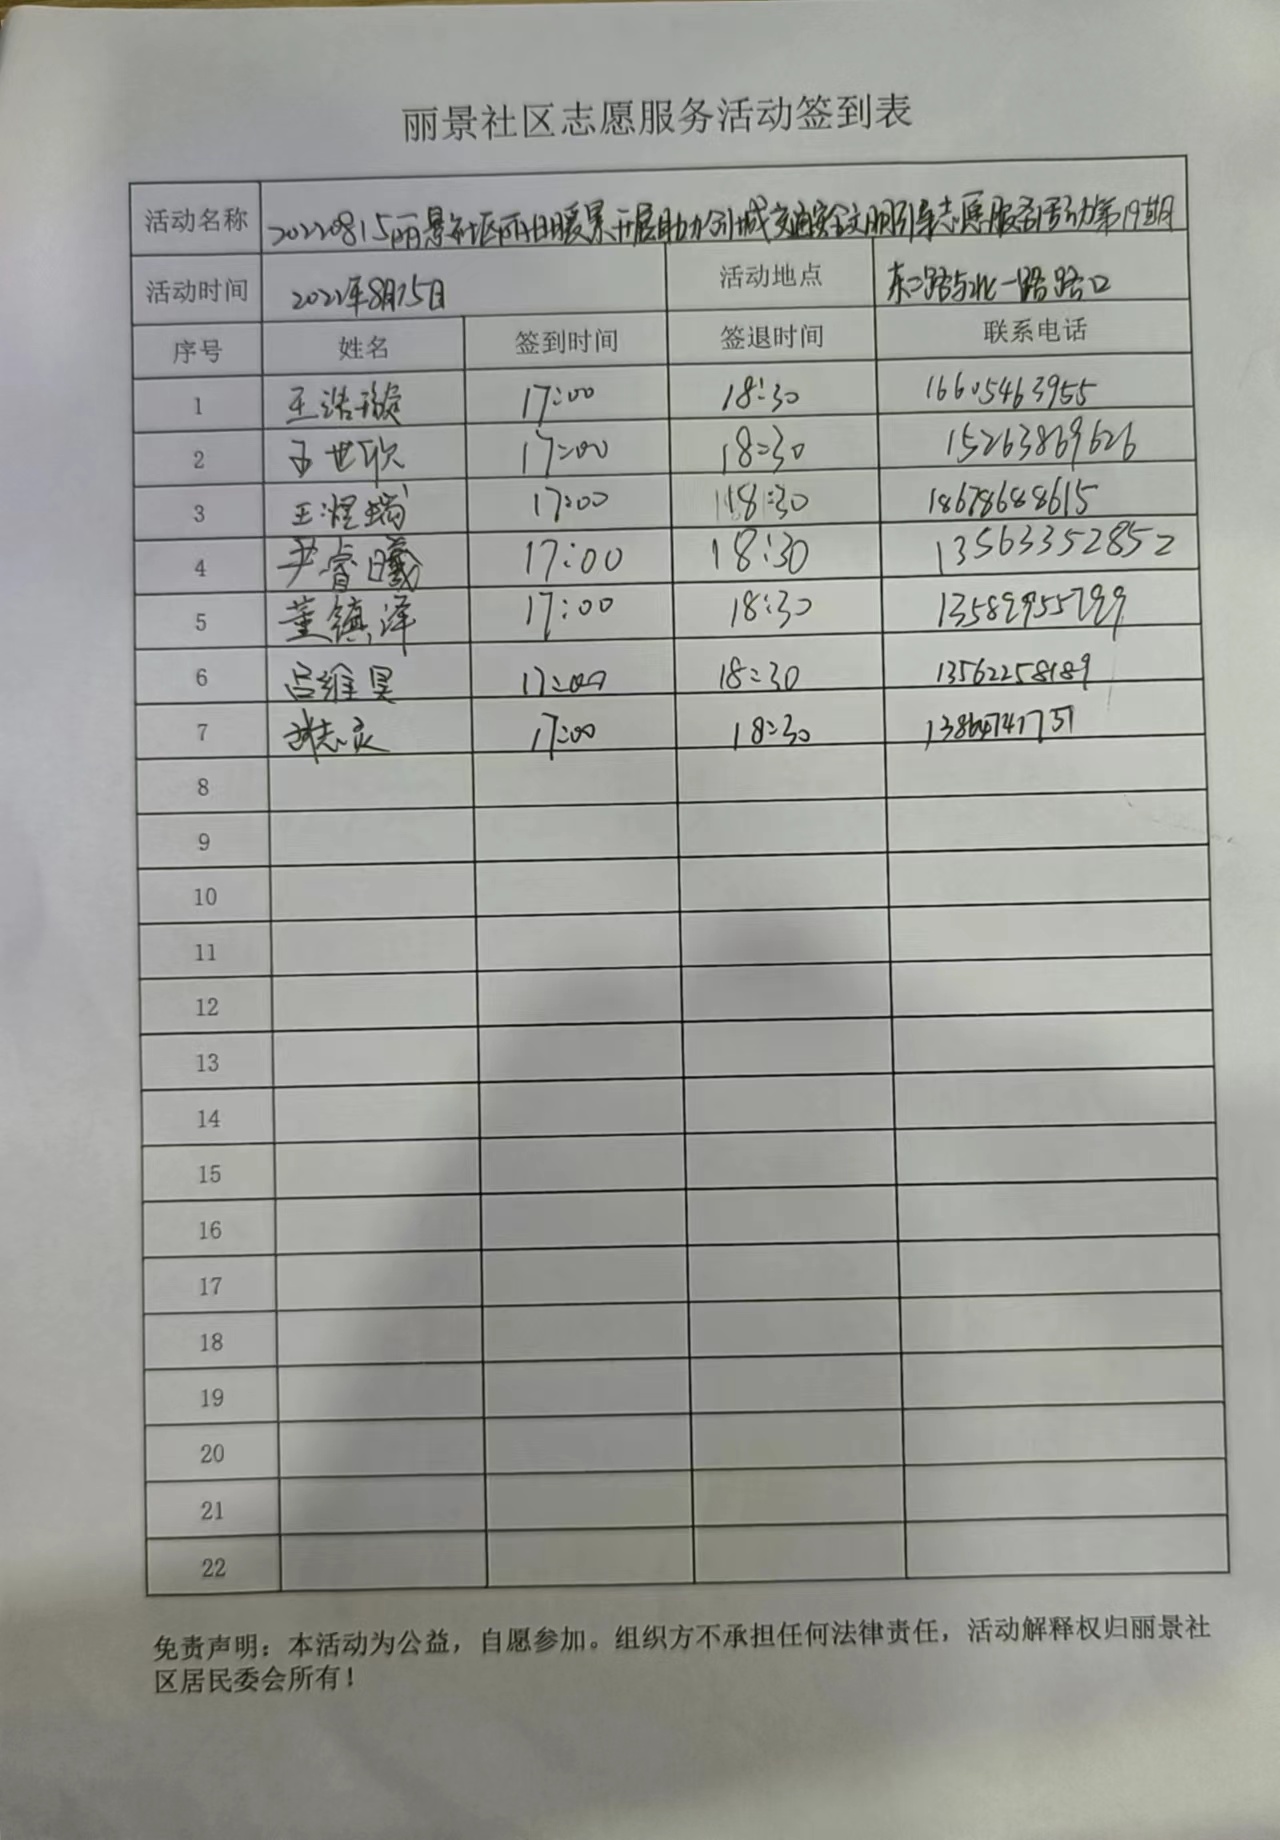 丽景社区志愿服务活动签到表
活动名称 20220815丽景社区丽日暖景开展助力创城交通安全文明引导志愿服务活动第19期
活动时间 2022年8月15日 活动地点 东二路与北一路路口
序号 姓名 签到时间 签退时间 联系电话
1 王浩璇 17:00 18:30 16605463955
2 王世欣 17:00 18:30 15263869626
3 王煜瑞 17:00 18:30 18678688615
4 尹睿曦 17:00 18:30 13563352852
5 董镇泽 17:00 18:30 13589955799
6 吕维昊 17:00 18:30 13562258189
7 17:00 18:30
8
9
10
11
12
13
14
15
16
17
18
19
20
21
22
免责声明：本活动为公益，自愿参加。组织方不承担任何法律责任，活动解释权归丽景社
区居民委会所有！